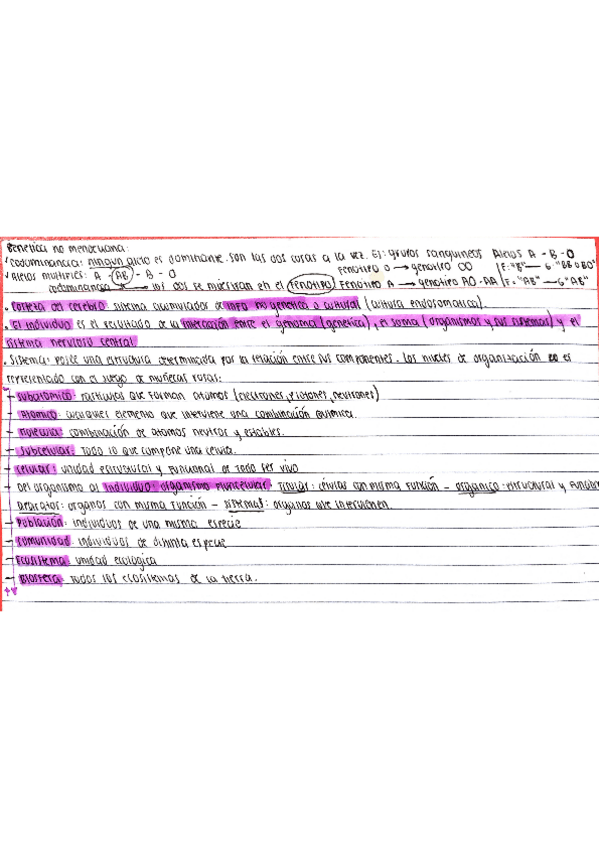 Genética no mendeliana:
✓ Codominancia: ningun alelo es dominante. son las dos cosas a la vez. Ej: grupos sanguineos Alelos A - B - O
✓ Alelos multiples: A - AB - B - O Fenotipo O → genotipo OO F: "B" — G: "BB o BO"
codominancia → los dos se muestran en el fenotipo Fenotipo A → genotipo AO - AA F= "AB" — G "AB"
• Corteza del cerebro: sistema acumulador de info no genetica o cultural (cultura endosomatica).
• El individuo es el resultado de la interacción entre el genoma (genetica), el soma (organismos y sus sistemas) y el
sistema nervioso central
• Sistema: posee una estructura determinada por la relación entre sus componentes. Los niveles de organización es
representado con el juego de muñecas rusas:
- Subatomico: particulas que forman atomos (electrones, protones, neutrones)
- Atomico: cualquier elemento que interviene una combinación quimica.
- molecula: combinación de atomos neutros y estables.
- subcelular: Todo lo que compone una celula.
- celular: unidad estructural y funcional de todo ser vivo
- Del organismo al individuo: organismo pluricelular. Tisular: células con misma función - organico: estructural y funcion
aparatos: organos con misma función - sistemas: organos que intervienen.
- Población: individuos de una misma especie
- Comunidad: individuos de distinta especie
- Ecosistema: unidad ecologica
- Biosfera: Todos los ecosistemas de la tierra.